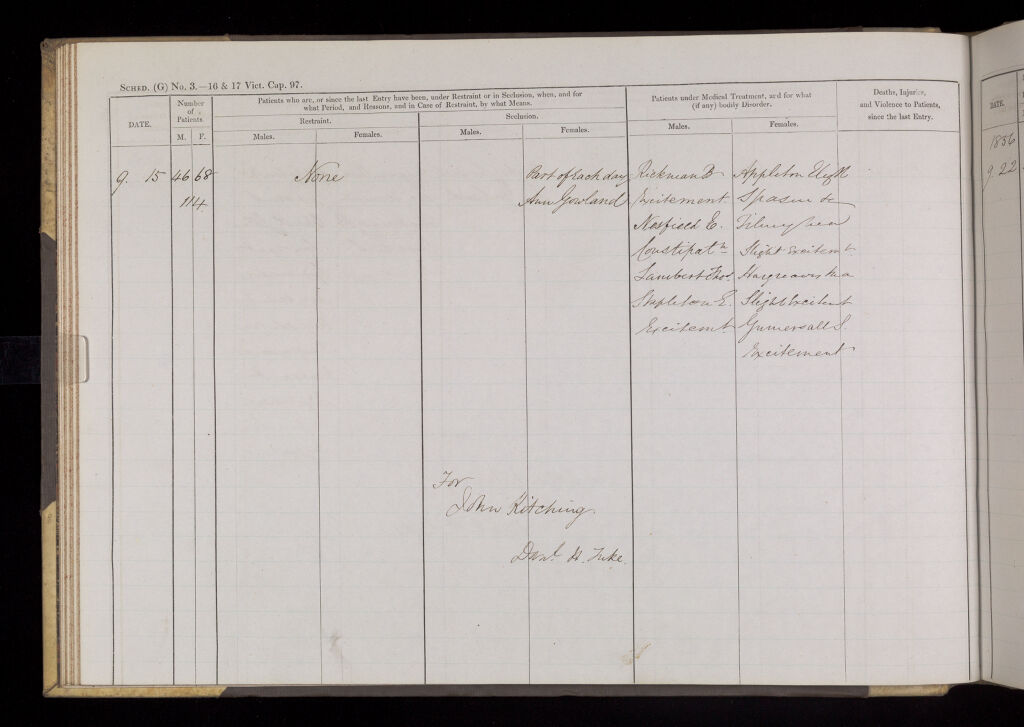 Sched. (G) No. 3.—16 & 17 Vict. Cap. 97.
DATE.
Number of Patients
M. F.
Patients who are, or since the last Entry have been, under Restraint or in Seclusion, when, and for
what Period, and Reasons, and in Case of Restraint, by what Means.
Restraint.
Males. Females.
Seclusion.
Males. Females.
Patients under Medical Treatment, and for what
(if any) bodily Disorder.
Males. Females.
Deaths, Injuries,
and Violence to Patients,
since the last Entry.
9. 15 46 68 None Part of Each day Rickman B Appleton Elizth
114 Ann Gowland Excitement Spasm &c
Nesfield E.
Constipatn Slight Excitemt
Lambert Thos. Hargreaves
Stapleton E. Slight Excitent
Excitemt Gumersall S.
Excitement
For
John Kitching
Danl. H. Tuke.
DATE.
1856
9 22